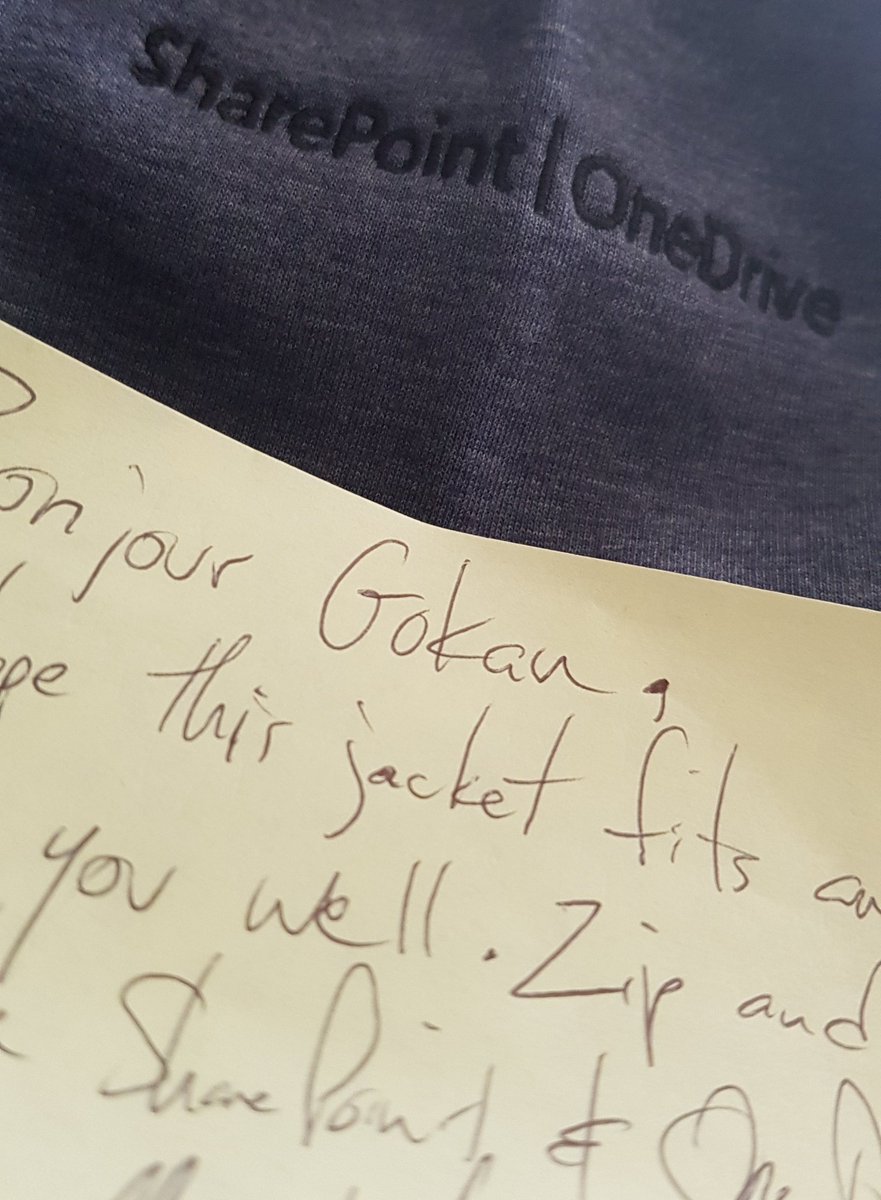 SharePoint | OneDrive
onjour Gokan,
ope this jacket fits an
you well. Zip and
SharePoint & OneD